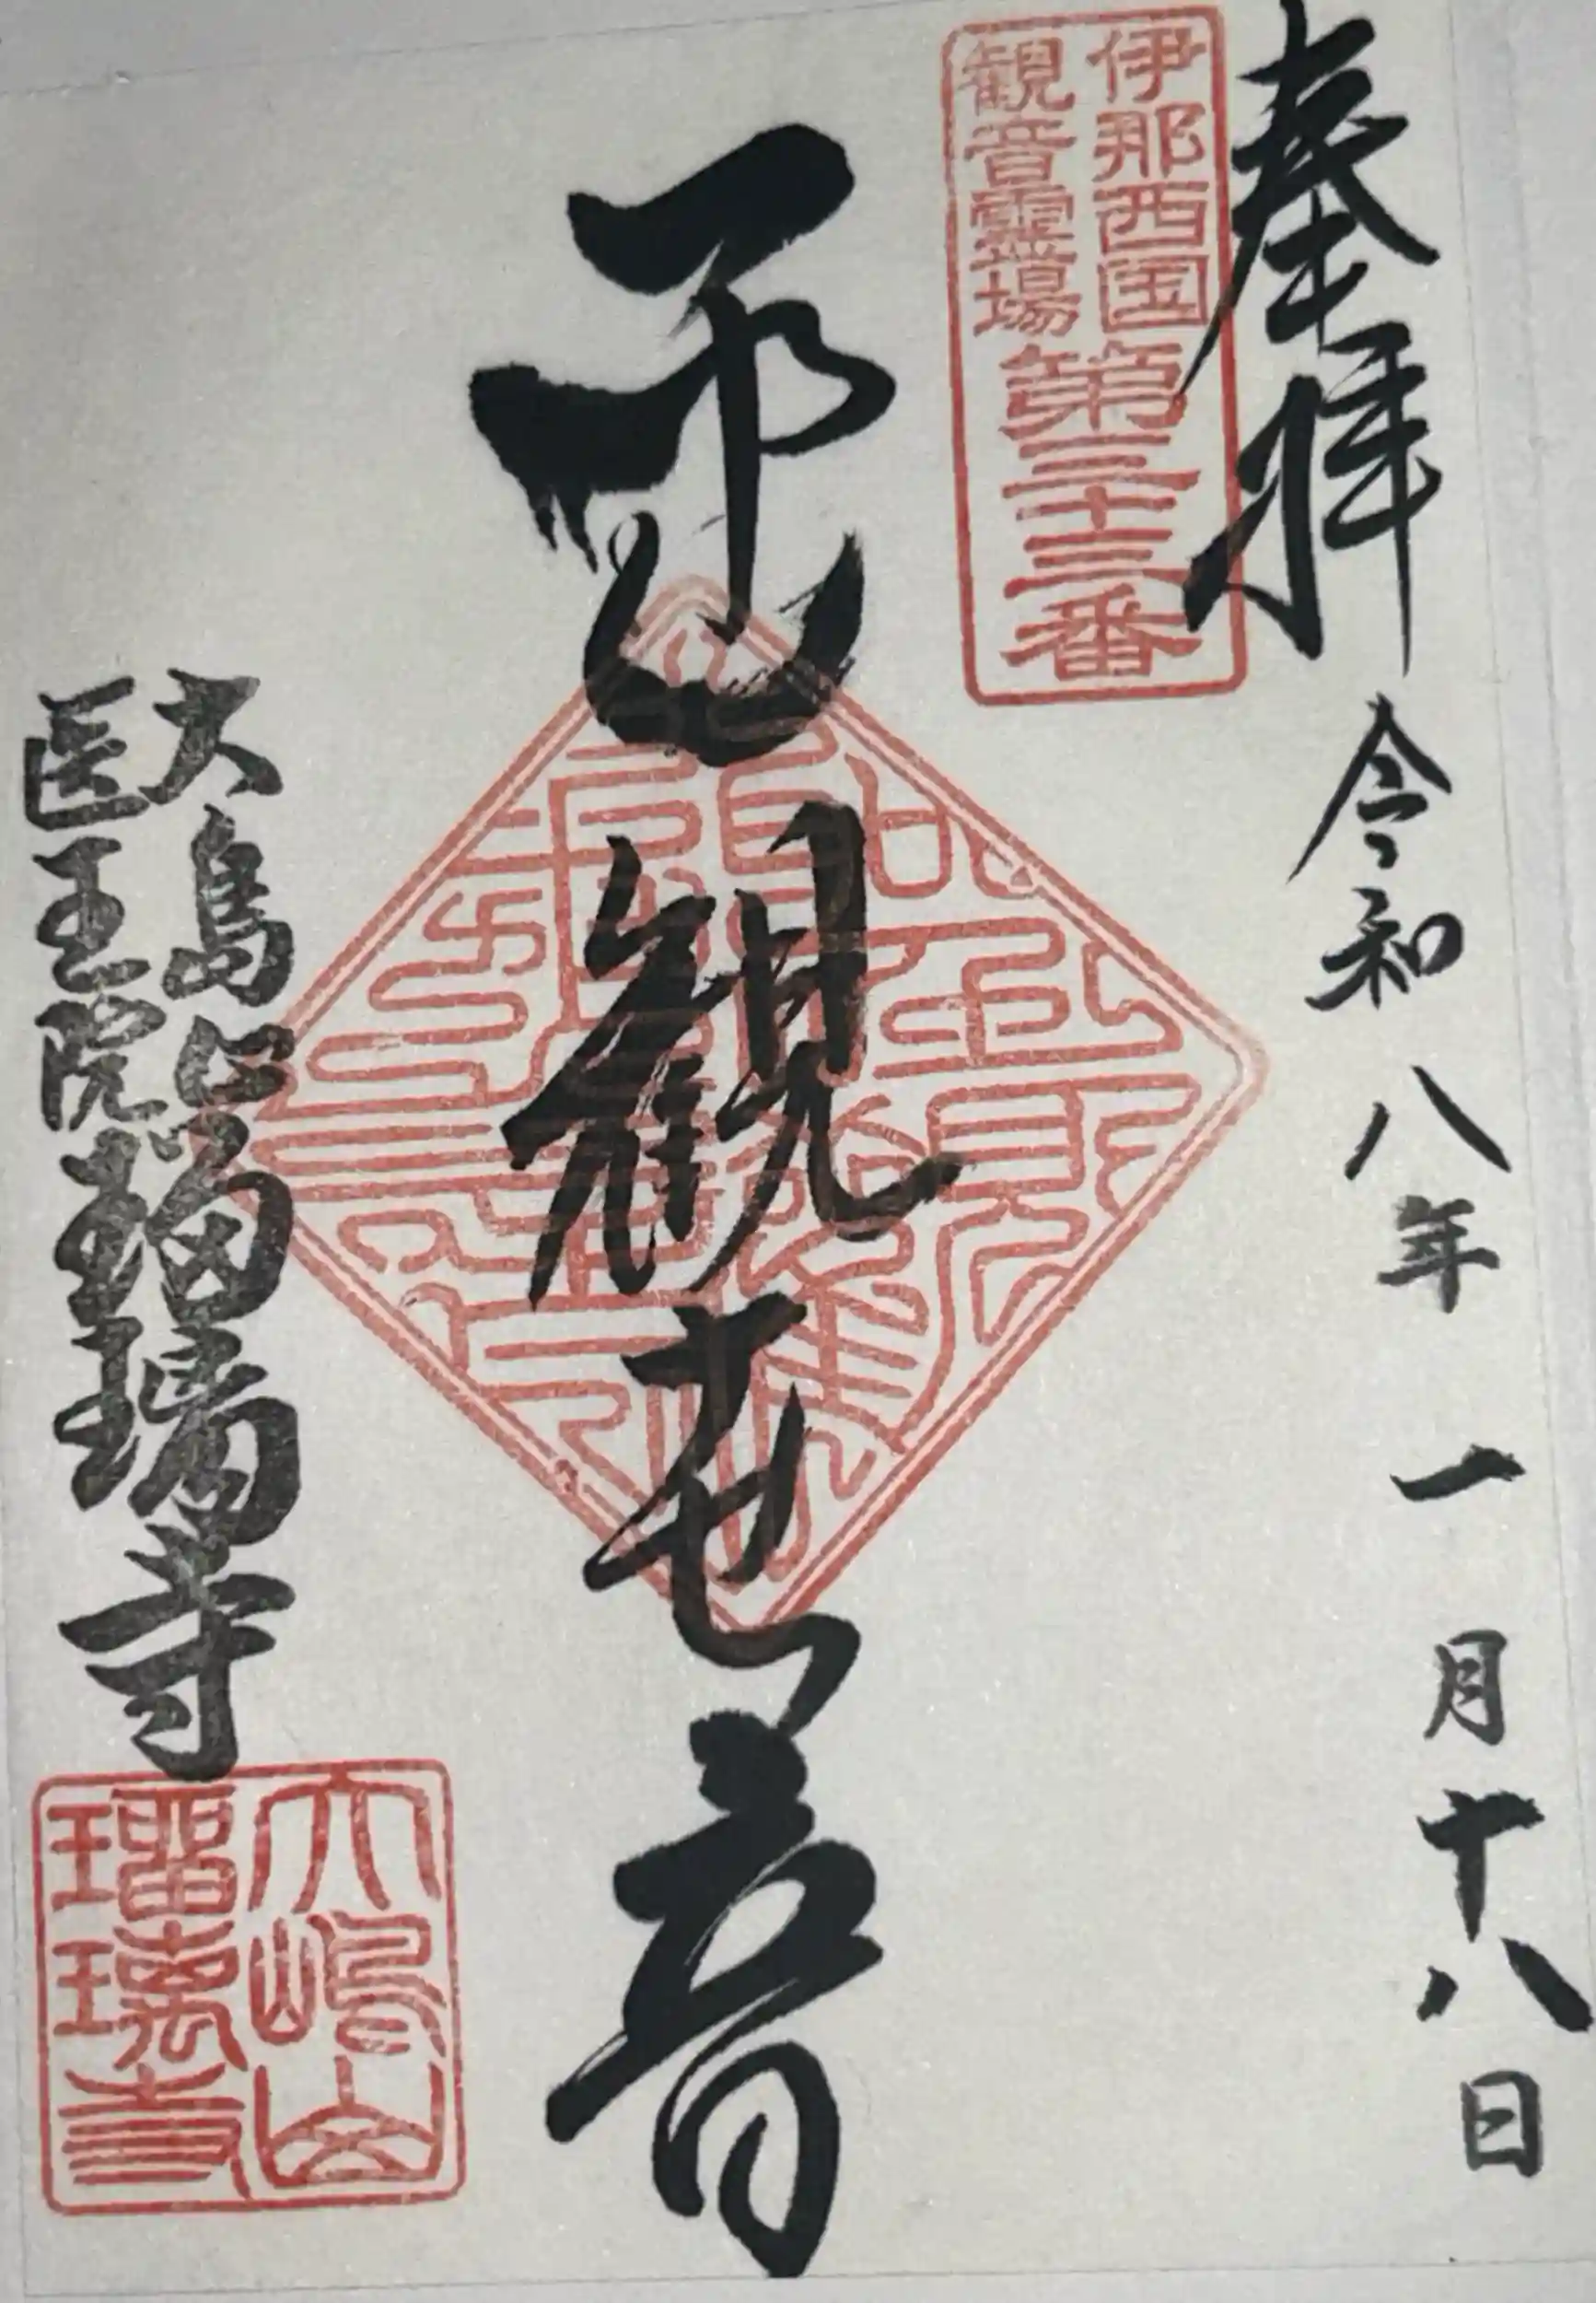 奉拝 令和八年一月十八日
伊那西国
観音霊場
第三十三番
聖観世音
大島山瑠璃寺
医王院
大嶋山
瑠璃寺